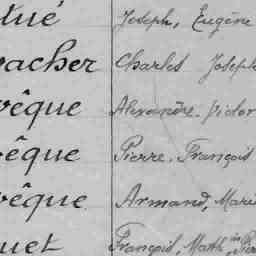 tué Joseph, Eugène
vacher Charles Joseph
vêque Alexandre. Victor
vêque Pierre. François
vêque Armand, Marie
uet François, Math